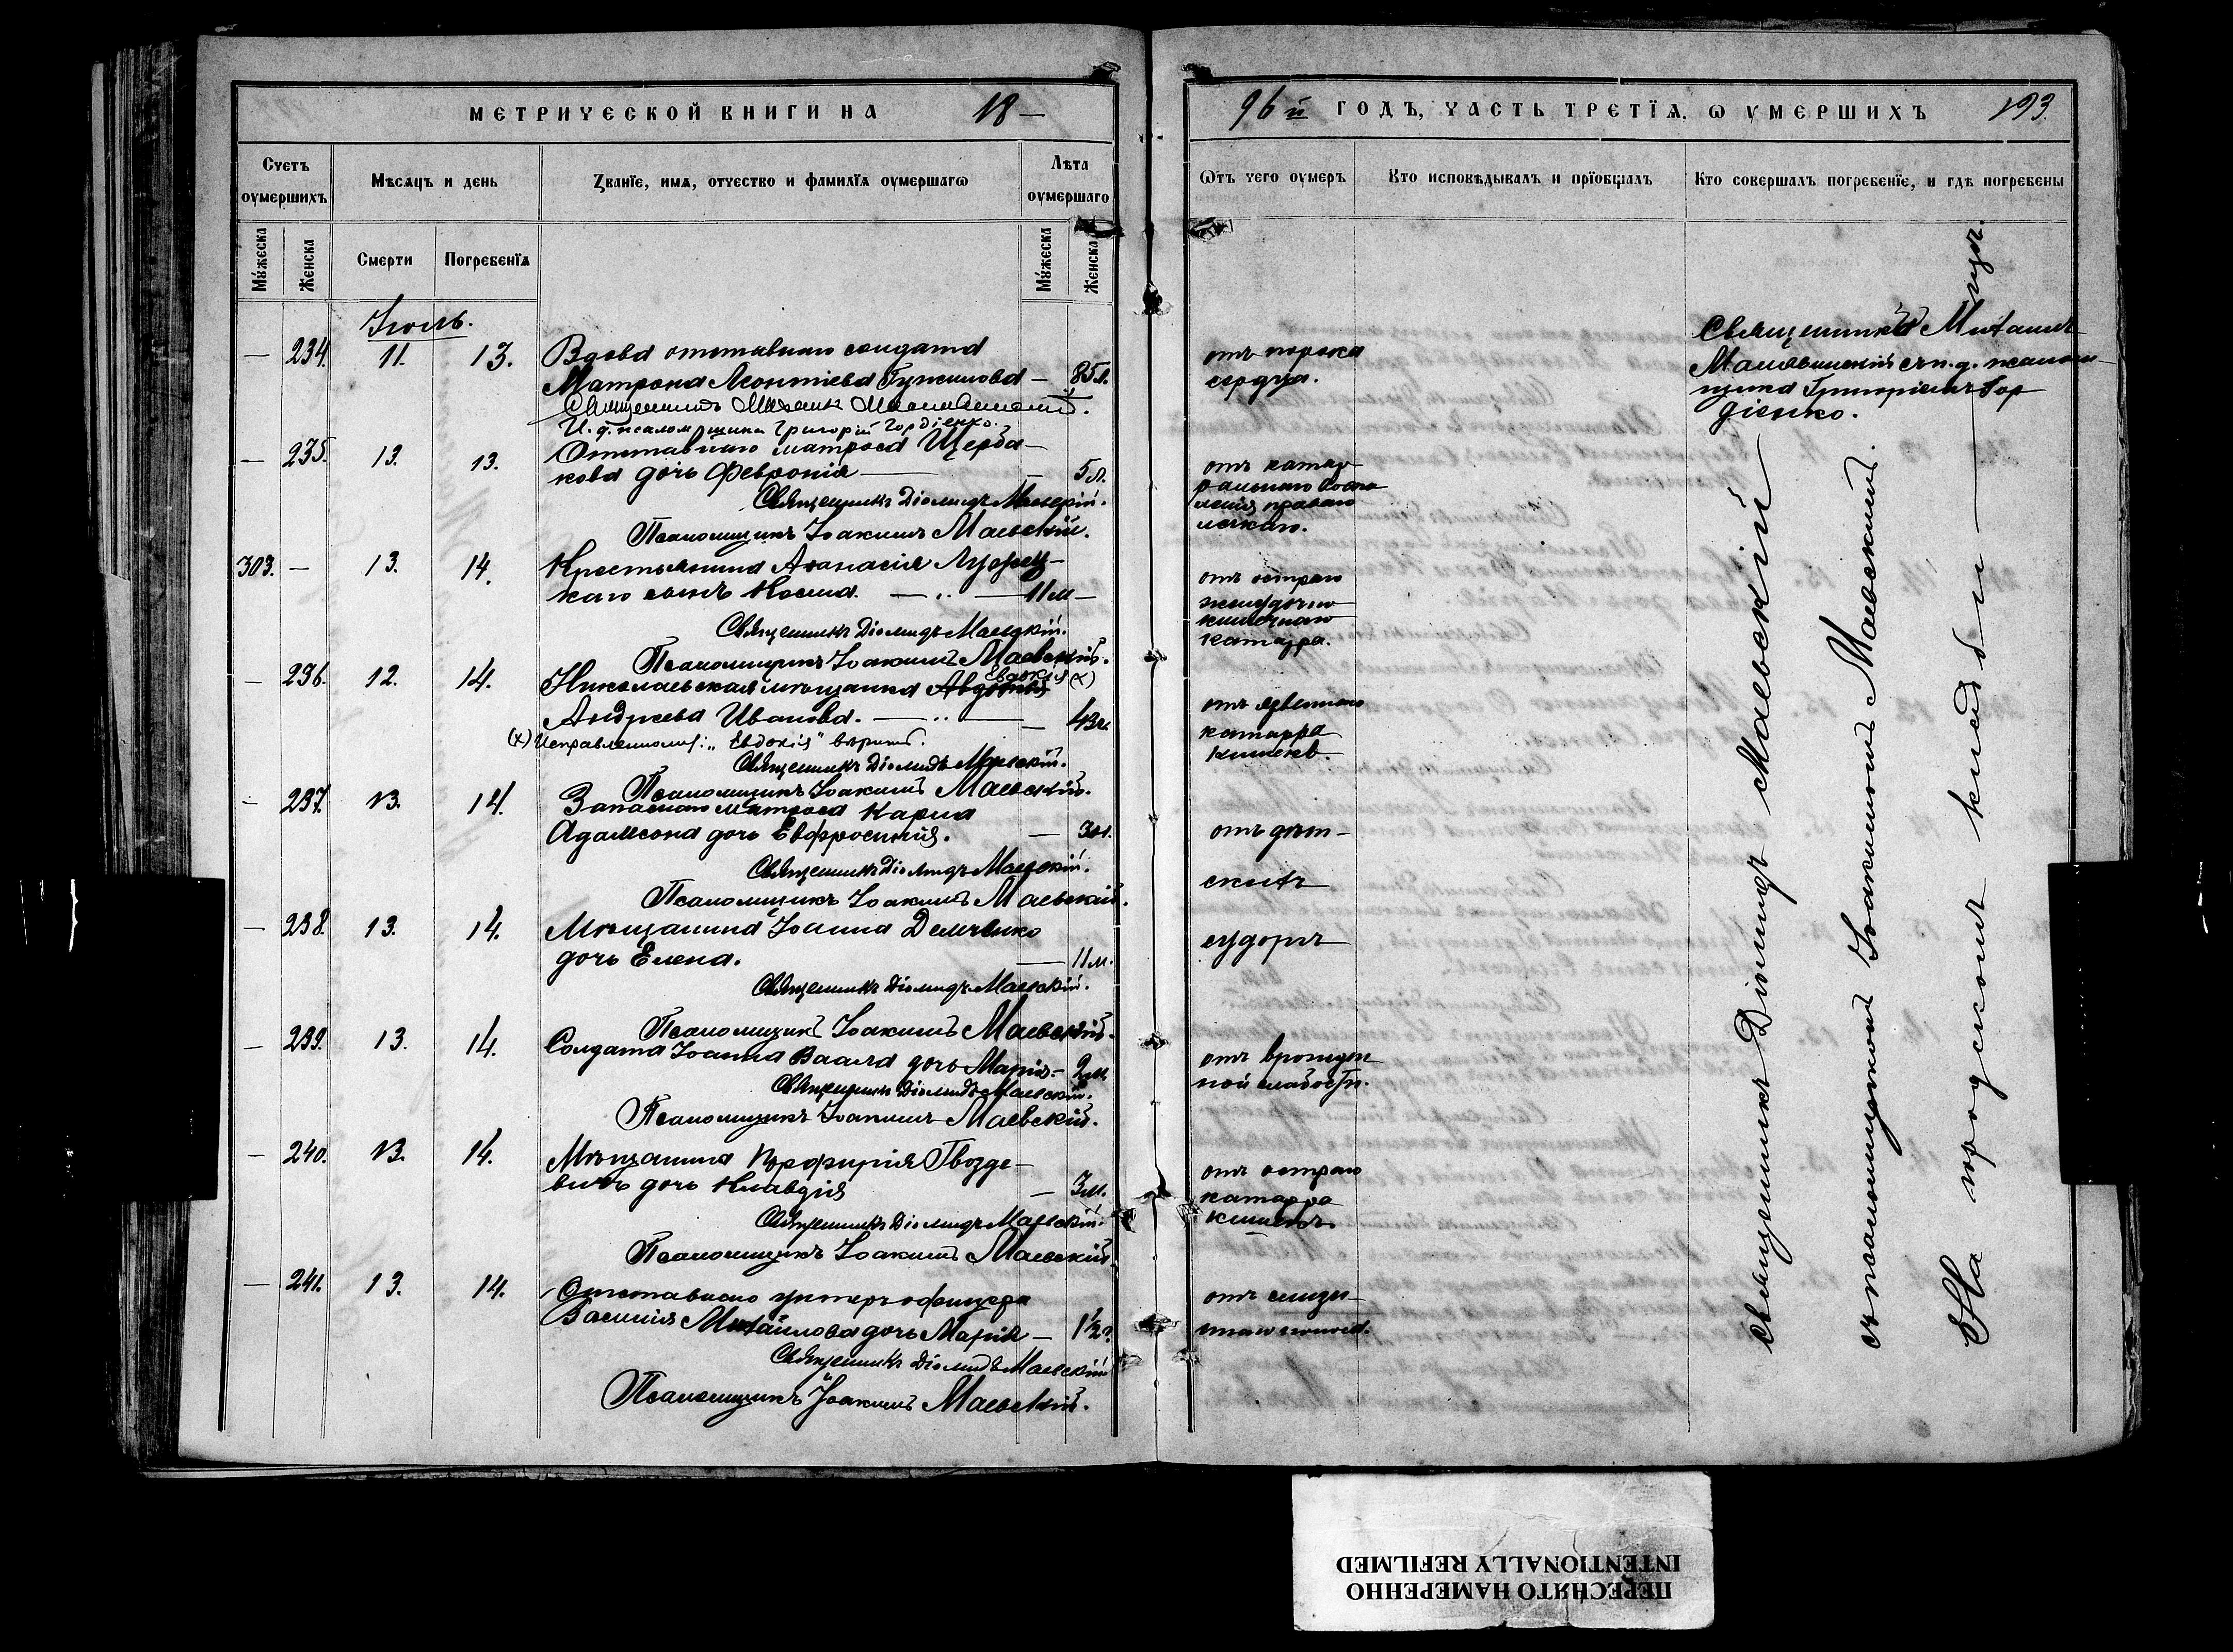 МЕТРИЧЕСКОЙ КНИГИ НА 18—
96й ГОДЪ, ЧАСТЬ ТРЕТІѦ, Ѡ УМЕРШИХЪ 193.
Счетъ оумершихъ
Мѣсѧцъ и день
Званїе, имѧ, отчество и фамилїѧ оумершагѡ
Лѣта оумершаго
Мужеска
Женска
Смерти
Погребенїѧ
Мужеска
Женска
Ѿтъ чего оумеръ
Кто исповѣдывалъ и прїобщалъ
Кто совершалъ погребенїе, и гдѣ погребены
Іюль.
— 234. 11. 13. Вдова отставнаго солдата
Матрона Леонтіева Гужилова — 85 л.
Священникъ Михаилъ
И. д. псаломщика Григорій Гордіенко.
отъ порока
сердца.
Священникъ Михаилъ
съ и. д. псалом-
щика Григоріемъ Гор
діенко.
— 235. 13. 13. Отставнаго матроса Щерба-
кова дочь Февронія — — 5 л.
Священникъ Діомидъ Маевскій.
Псаломщикъ Іоакимъ Маевскій.
отъ катар-
ральнаго воспа
ленія праваго
легкаго.
303. — 13. 14. Крестьянина Аѳанасія Луфец-
каго сынъ Косма. — .. — 11 м —
Священникъ Діомидъ Маевскій.
Псаломщикъ Іоакимъ Маевскій.
отъ остраго
желудочно
кишечнаго
катарра.
— 236. 12. 14. Николаевская мѣщанка Евдокія (х)
Андреева Иванова. — .. — — 43 г.
(х) Исправленному: „Евдокія" вѣрить.
Священникъ Діомидъ Маевскій.
Псаломщикъ Іоакимъ Маевскій.
отъ язвеннаго
катарра
кишекъ.
— 237. 13. 14. Запаснаго матроса Карла
Адамсона дочь Евфросинія. — 3 м.
Священникъ Діомидъ Маевскій.
Псаломщикъ Іоакимъ Маевскій.
отъ дѣт-
скихъ
— 238. 13. 14. Мѣщанина Іоанна Демченко
дочь Елена. — 11 м.
Священникъ Діомидъ Маевскій.
Псаломщикъ Іоакимъ Маевскій.
судоргъ
— 239. 13. 14. Солдата Іоанна Ваала дочь Марія — 2 м.
Священникъ Діомидъ Маевскій.
Псаломщикъ Іоакимъ Маевскій.
отъ врожден
ной слабости.
— 240. 13. 14. Мѣщанина Порфирія Гвозде-
вичъ дочь Клавдія — 3 м.
Священникъ Діомидъ Маевскій.
Псаломщикъ Іоакимъ Маевскій.
отъ остраго
катарра
кишекъ.
— 241. 13. 14. Отставнаго унтеръ офицера
Василія Михайлова дочь Марія — 1½ г.
Священникъ Діомидъ Маевскій
Псаломщикъ Іоакимъ Маевскій.
Священникъ Діомидъ Маевскій
съ псаломщикомъ Іоакимомъ Маевскимъ.
На городскомъ кладбищѣ.
ПЕРЕСНЯТО НАМЕРЕННО
INTENTIONALLY REFILMED